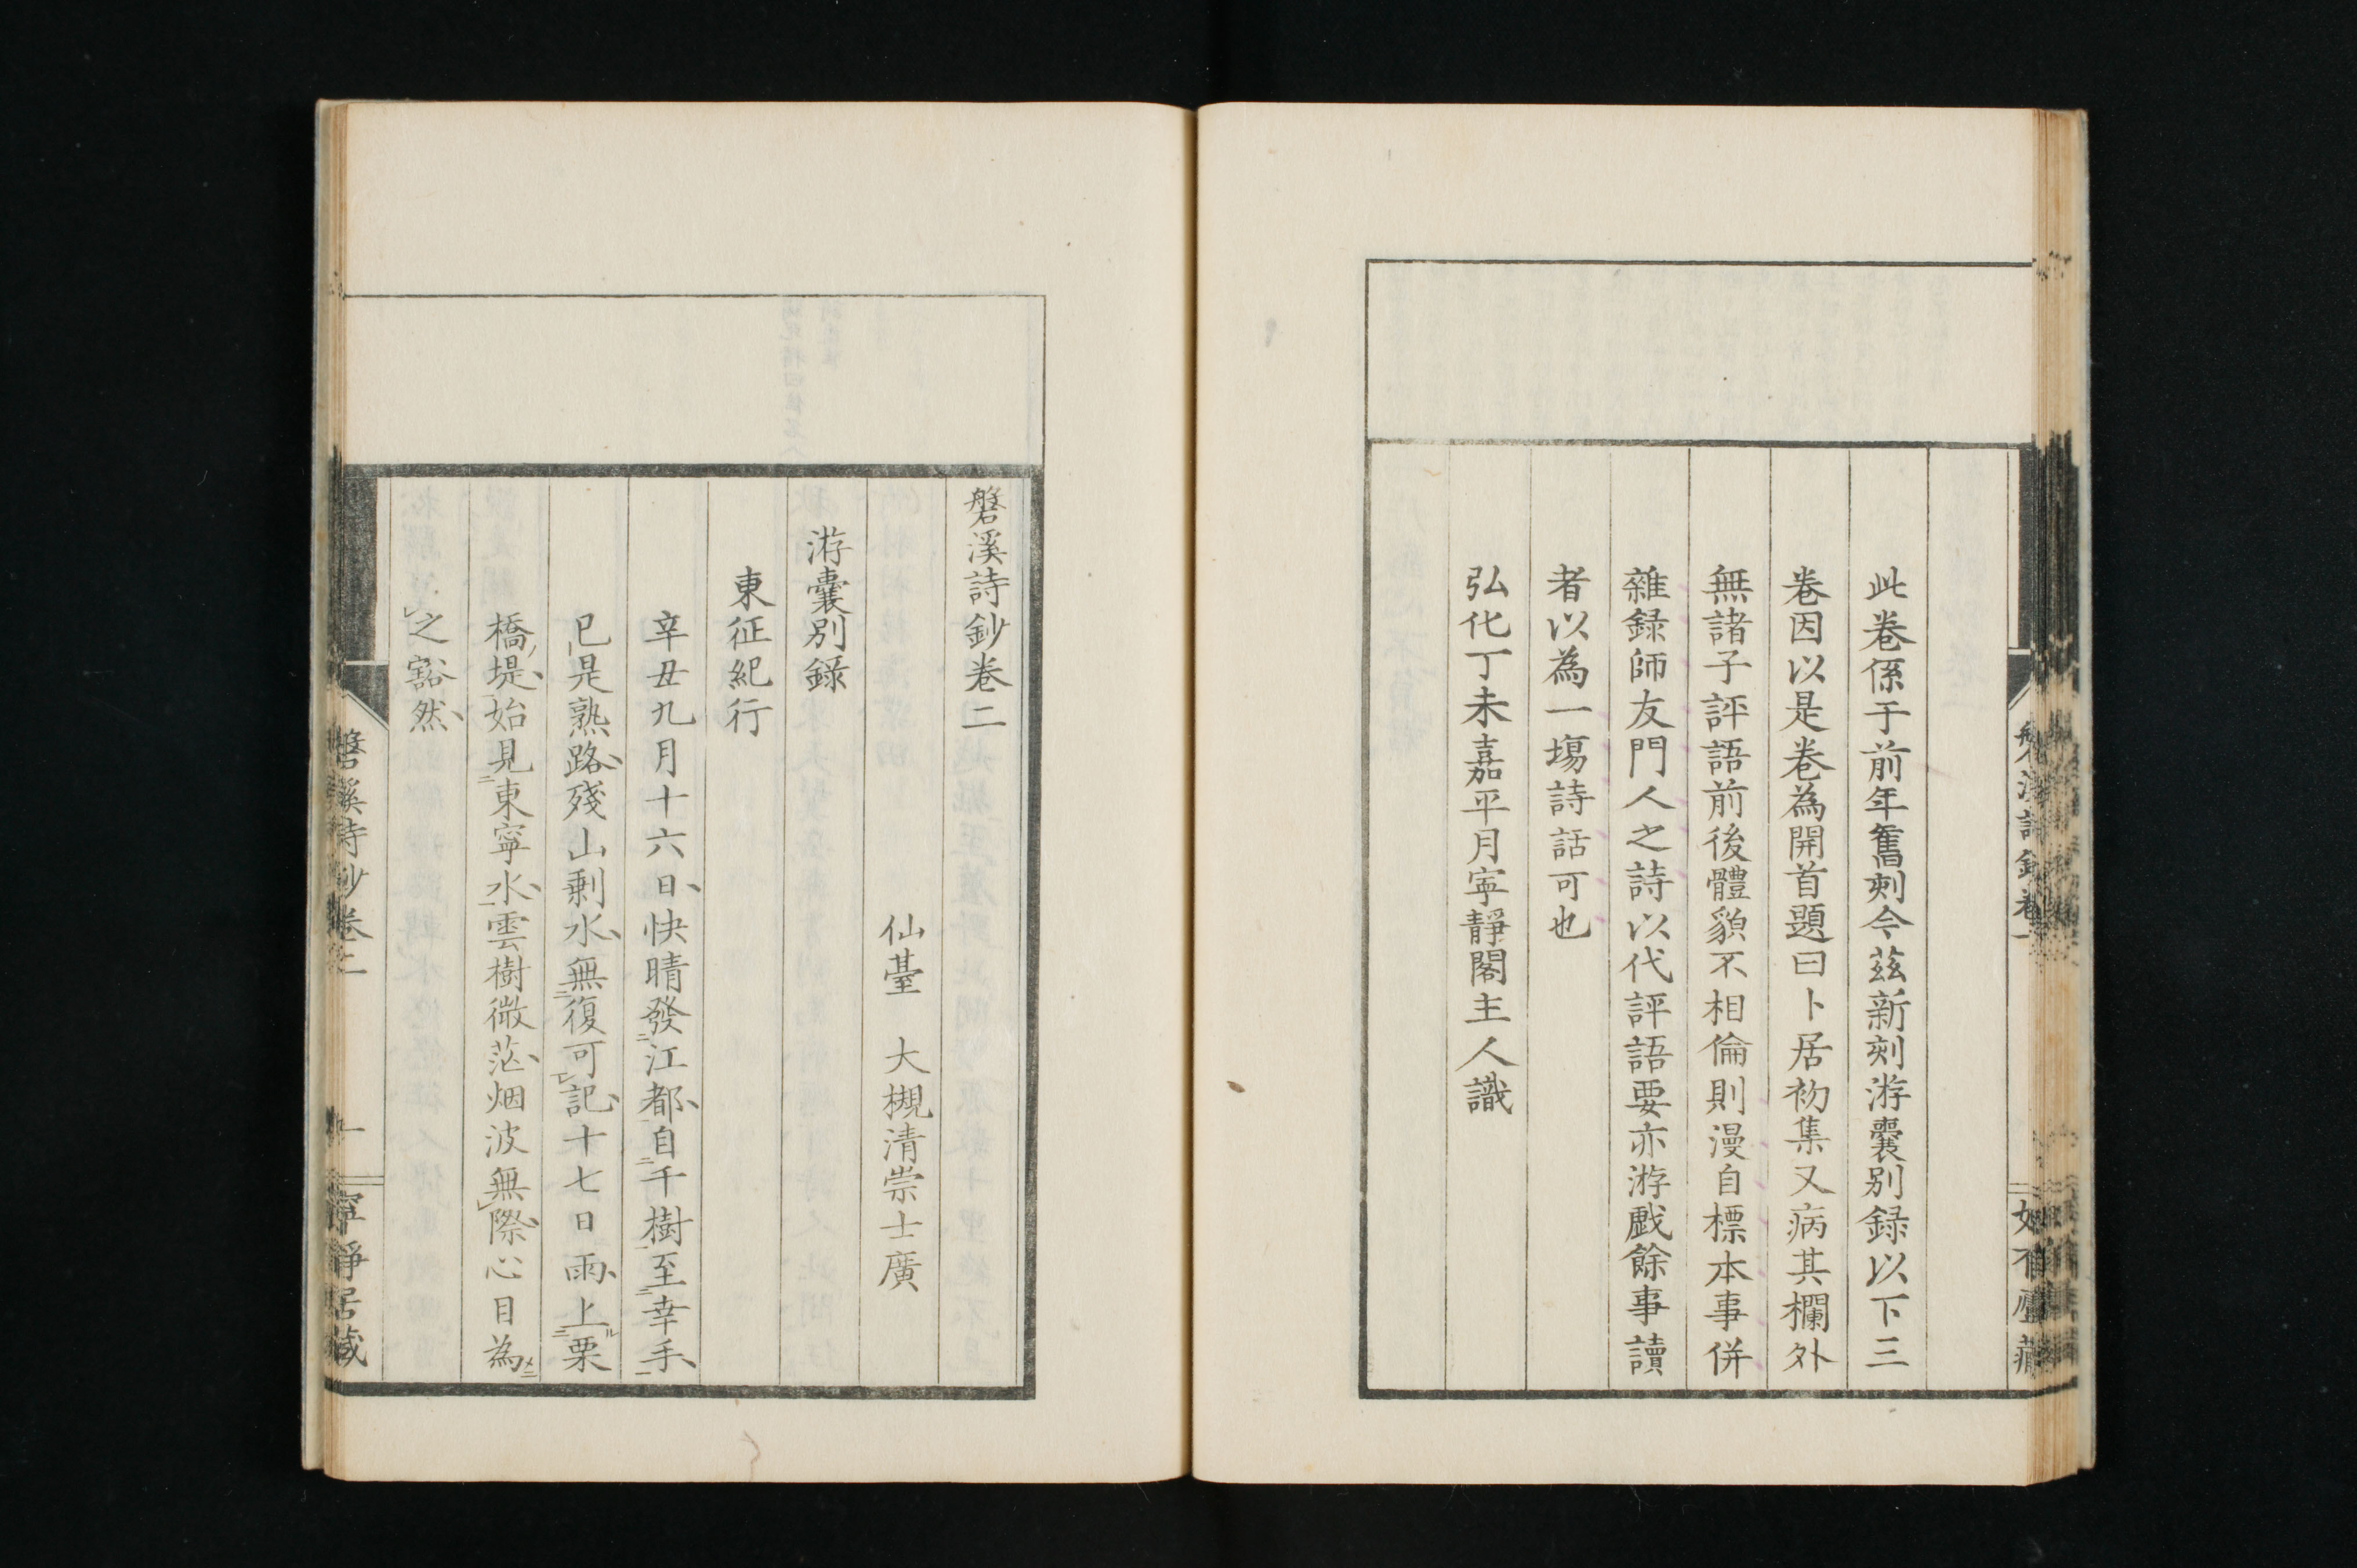 此卷係于前年舊刻今茲新刻游囊別録以下三
卷因以是卷為開首題曰卜居初集又病其欄外
無諸子評語前後體貌不相倫則漫自標本事併
雜録師友門人之詩以代評語要亦游戲餘事讀
者以為一塲詩話可也
弘化丁未嘉平月寧靜閣主人識
磐溪詩鈔卷二
仙臺 大槻清崇士廣
游囊別錄
東征紀行
辛丑九月十六日快晴發江都自千樹至幸手
已是熟路殘山剩水無復可記十七日雨上栗
橋堤始見東寧水雲樹微茫烟波無際心目為
之豁然
磐溪詩鈔卷二
一
寧靜居藏